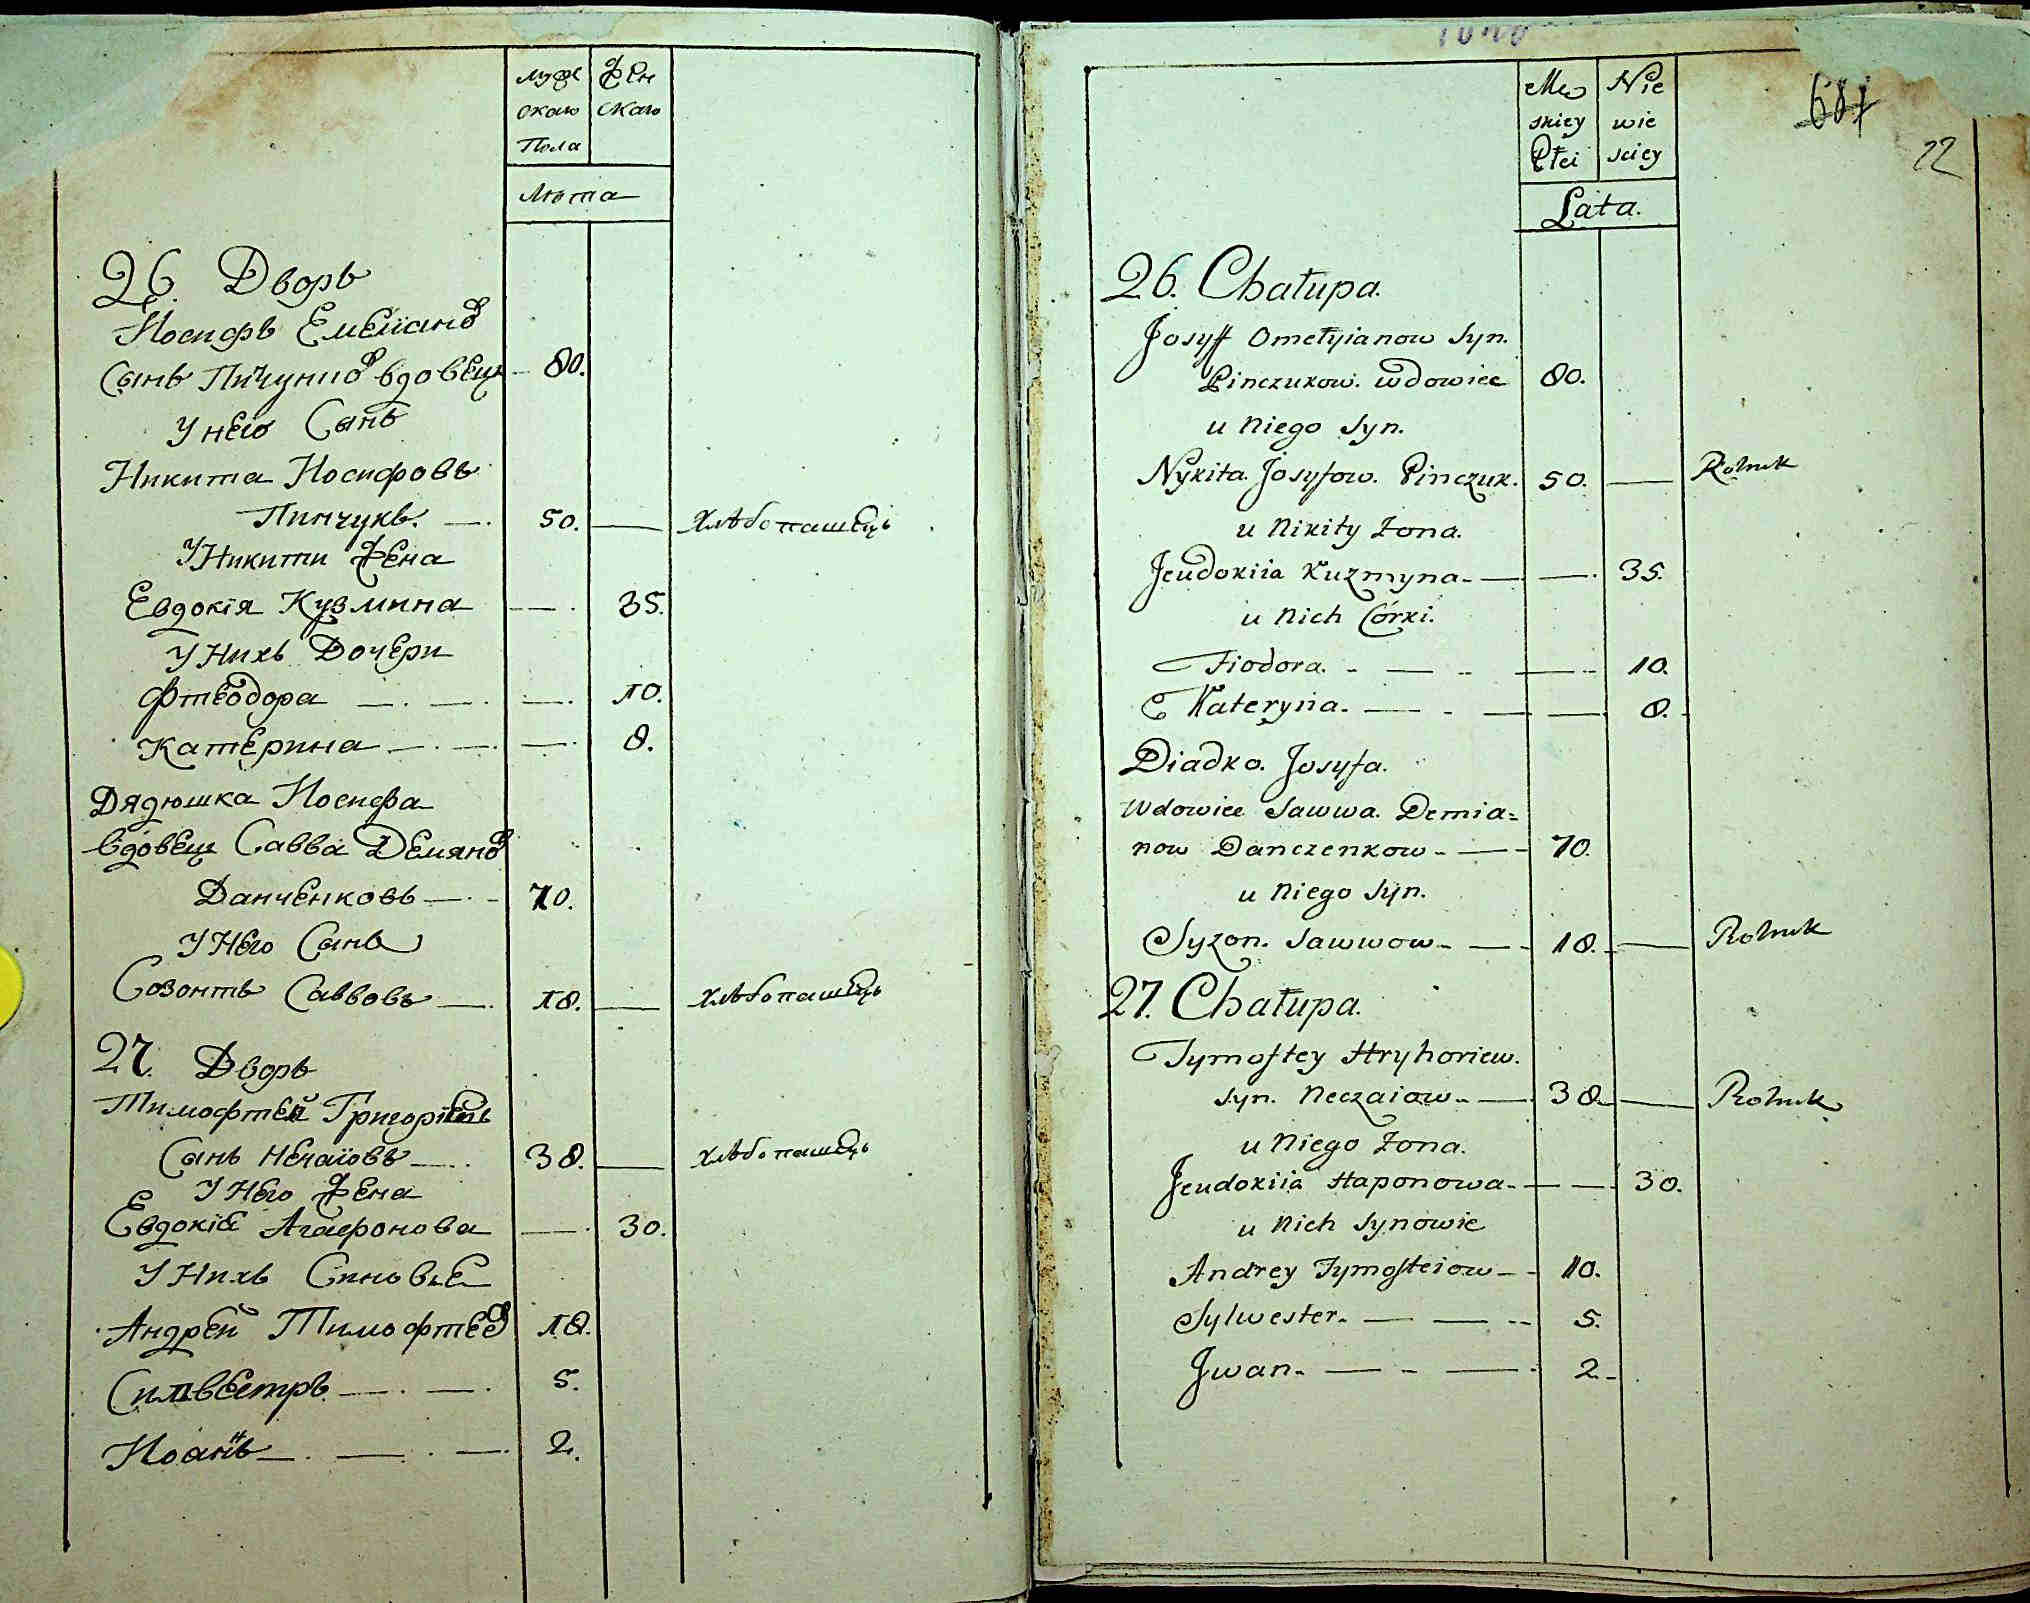 муже жен
скаго скаго
Пола
Люта
26. Дворъ
Иосифъ Емелiановъ
Сынъ Пинчуковъ вдовец — 80.
У него Сынъ
Никита Иосифовъ
Пинчукъ. — 50. — хлѣбопашецъ
У Никити жена
Евдокія Кузмина — 35.
У Нихъ Дочери
Фтеодора — 10.
Катерина — 8.
Дядюшка Иосифа
вдовец Савва Демяновъ
Данченковъ — 70.
У Него Сынъ
Созонтъ Саввовъ — 18. — хлѣбопашецъ
27. Дворъ
Тимофтей Григоріевъ
Сынъ Нечаiовъ — 38. — хлѣбопашецъ
У Него жена
Евдокія Агафонова — 30.
У Нихъ Синовье
Андрей Тимофтеев 18.
Силвестръ — 5.
Иоаннъ — 2.
Mę Nie
skiey wie
Płci sciey
22
Lata.
26. Chałupa.
Josyff Omełyianow Syn.
Pinczukow. wdowiec 80.
u Niego Syn.
Nykita Josyfow. Pinczuk. 50. — Rolnik
u Nikity Zona.
Jeudokiia Kuzmyna — 35.
u Nich Córki.
Fiodora. — 10.
Kateryna. — 8.
Diadko. Josyfa.
Wdowiec Sawwa. Demia=
now Danczenkow — 70.
u Niego Syn.
Syzon. Sawwow — 18. — Rolnik
27. Chałupa.
Tymoftey Hryhoriew.
Syn. Neczaiow — 38. — Rolnik
u Niego Zona.
Jeudokiia Haponowa — 30.
u Nich Synowie
Andrey Tymofteiow — 10.
Sylwester. — 5.
Jwan. — 2.